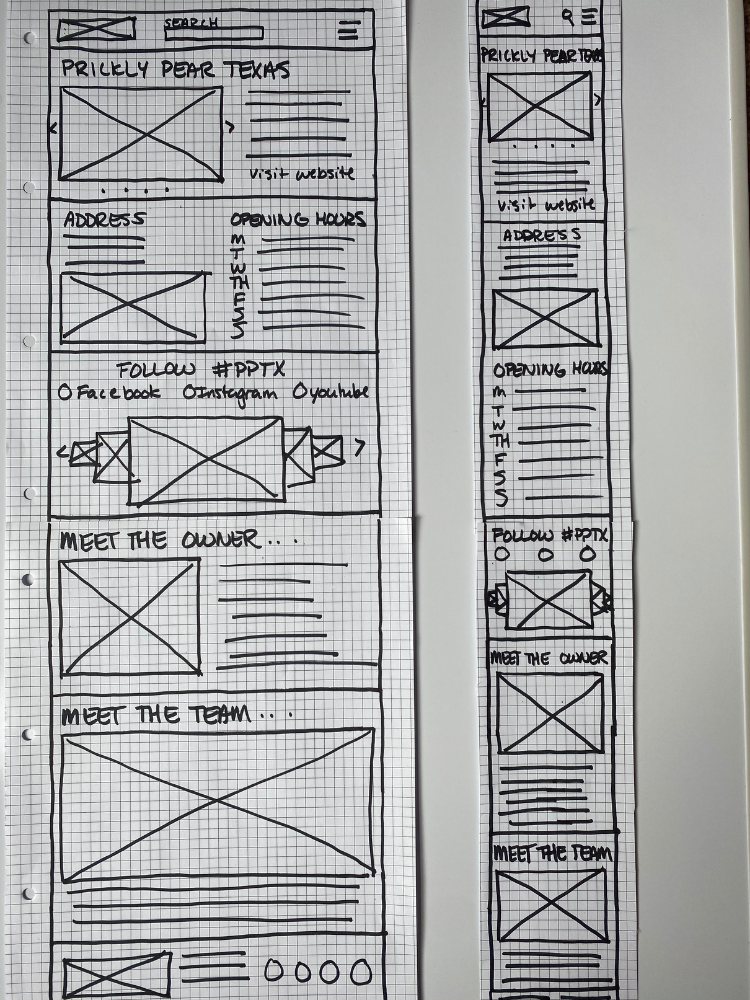 SEARCH
PRICKLY PEAR TEXAS
visit website
ADDRESS
OPENING HOURS
M
T
W
TH
F
S
S
FOLLOW #PPTX
Facebook Instagram Youtube
MEET THE OWNER...
MEET THE TEAM...
PRICKLY PEAR TEXAS
visit website
ADDRESS
OPENING HOURS
M
T
W
TH
F
S
S
FOLLOW #PPTX
MEET THE OWNER
MEET THE TEAM